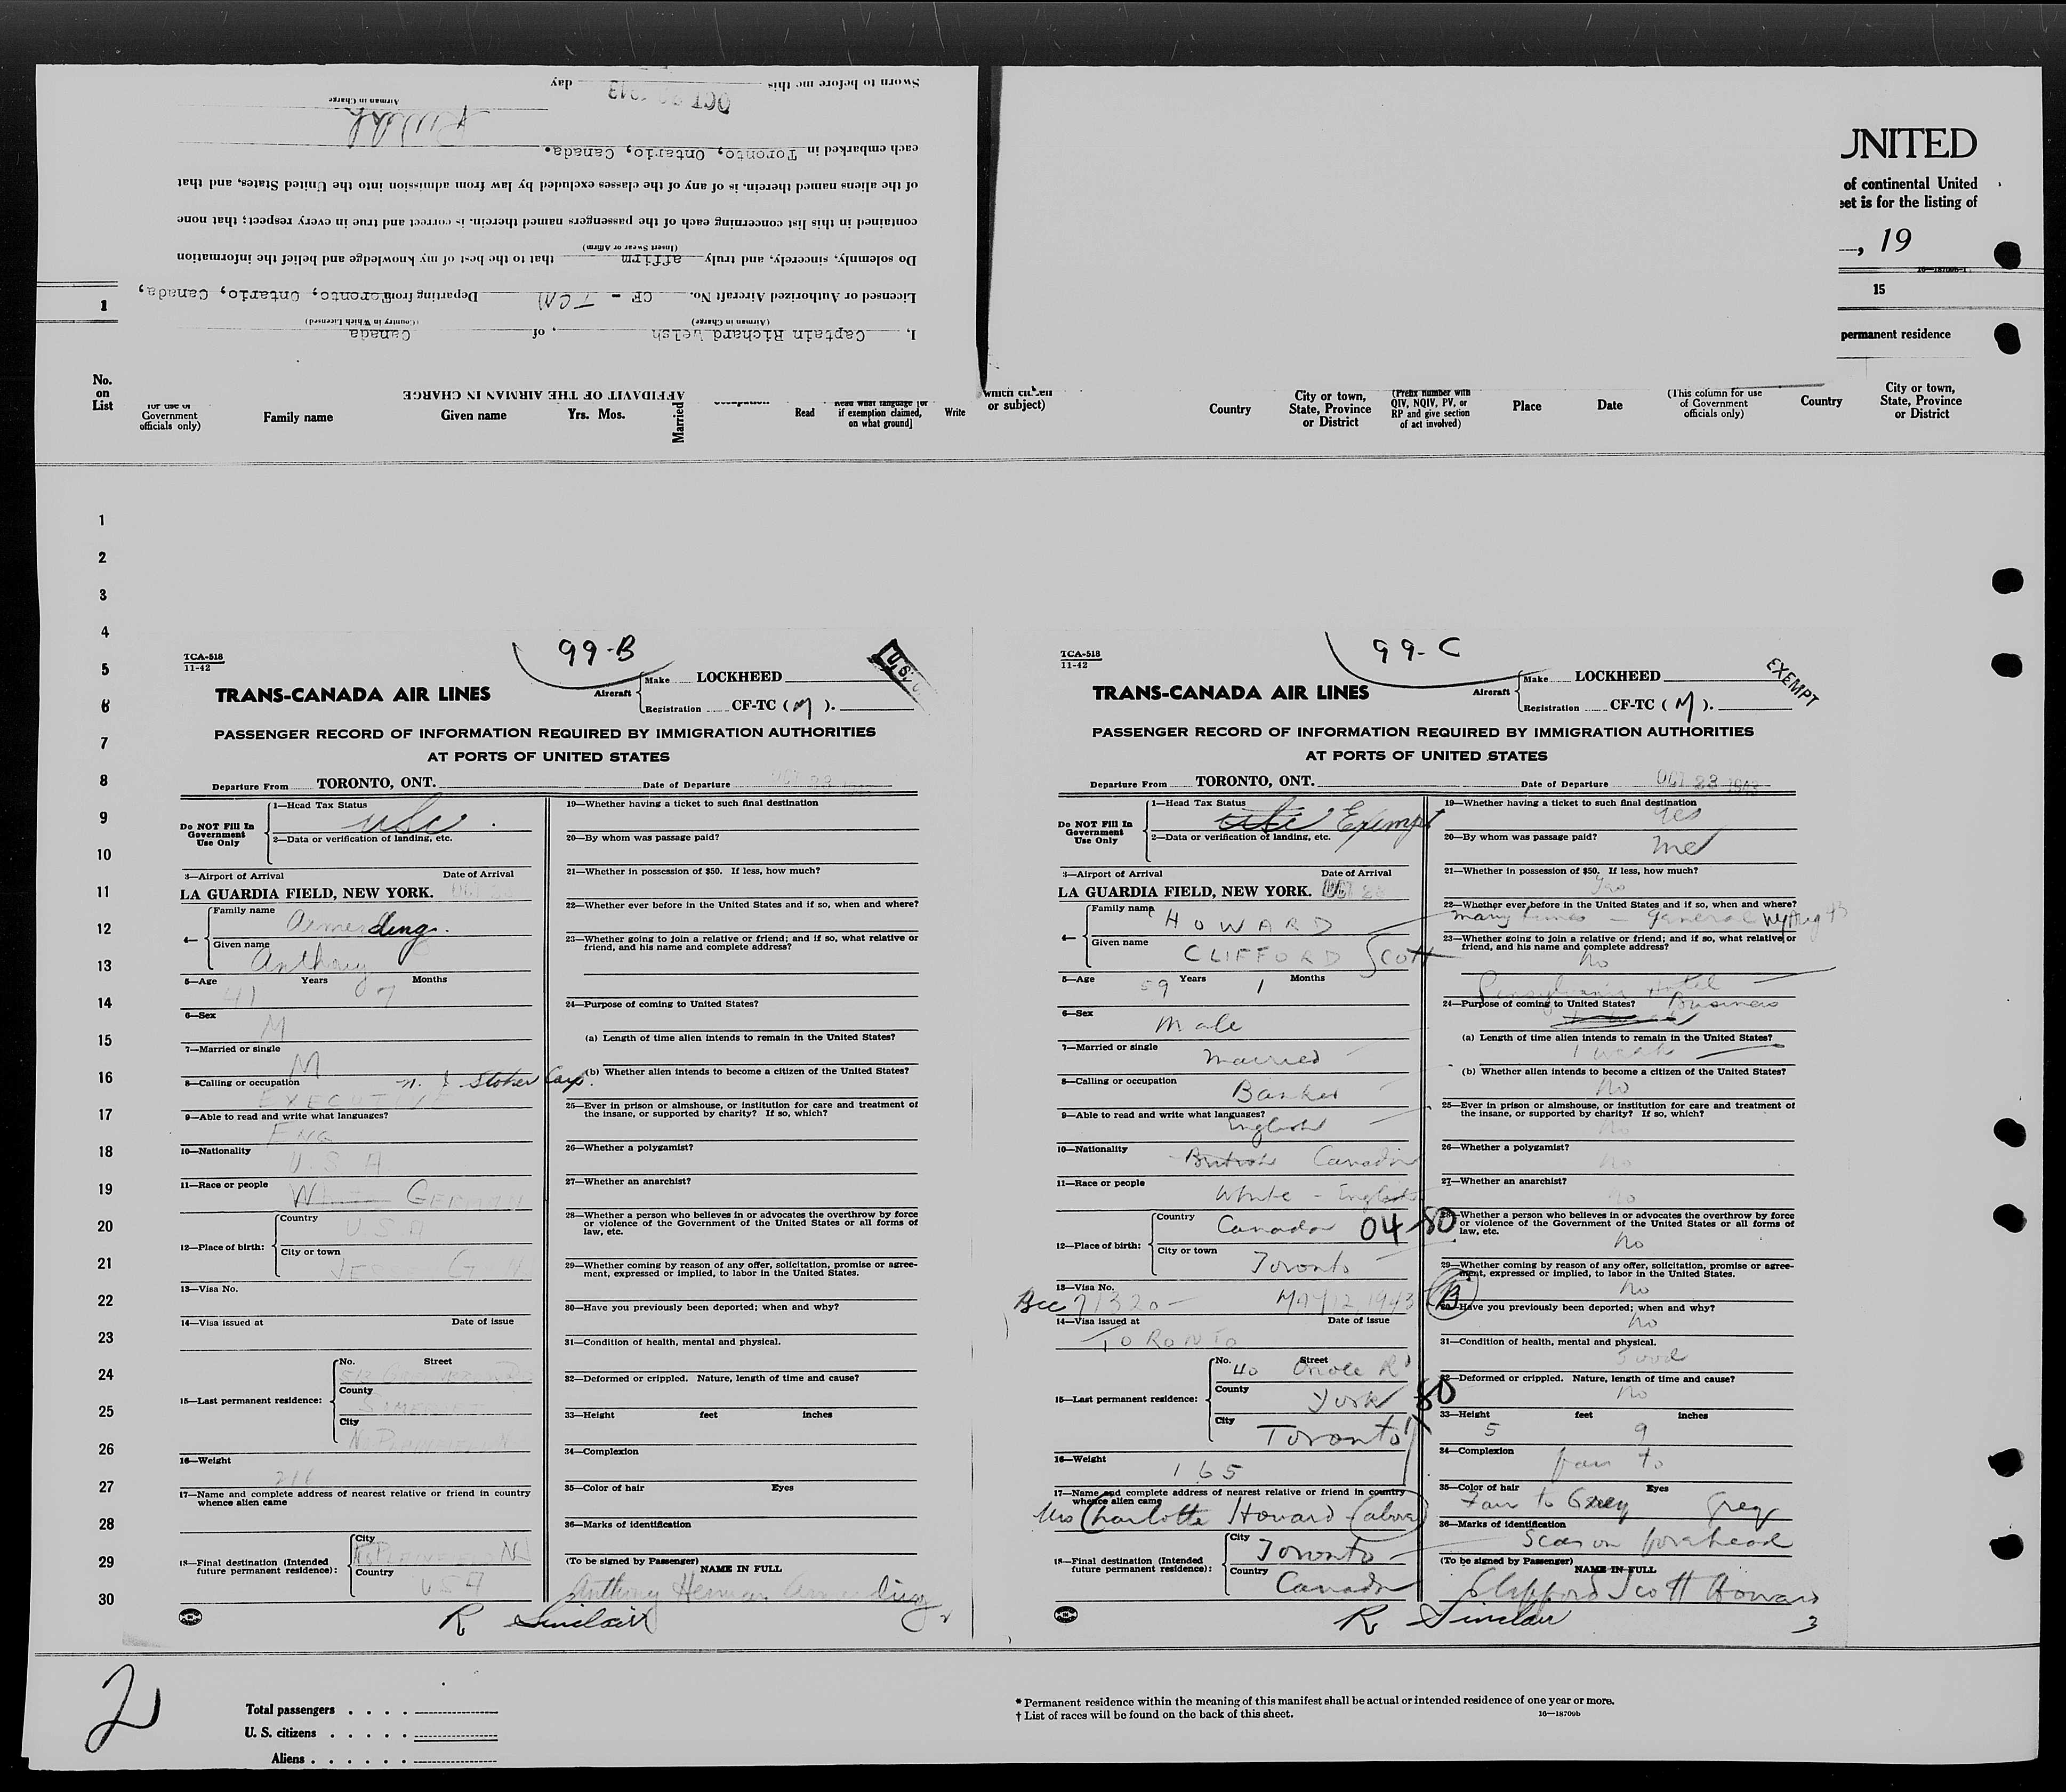 Sworn to before me this day
OCT 1943
Airman in Charge
each embarked in Toronto, Ontario, Canada.
of the aliens named therein, is of any of the classes excluded by law from admission into the United States, and that
contained in this list concerning each of the passengers named therein, is correct and true in every respect; that none
(Insert Swear or Affirm)
Do solemnly, sincerely, and truly affirm that to the best of my knowledge and belief the information
Licensed or Authorized Aircraft No. CF - TCM Departing from Toronto, Ontario, Canada,
(Airman in Charge) (Country in Which Licensed)
I, Captain Richard Welsh, of Canada
AFFIDAVIT OF THE AIRMAN IN CHARGE
UNITED
of continental United
eet is for the listing of
, 19
1
15
permanent residence
No. on List
for use of Government officials only)
Family name
Given name
Yrs. Mos.
Married
Read
Read what language [or if exemption claimed, on what ground]
Write
which citizen or subject)
Country
City or town, State, Province or District
(Prefix number with QIV, NQIV, PV, or RP and give section of act involved)
Place
Date
(This column for use of Government officials only)
Country
City or town, State, Province or District
1
2
3
4
5
6
7
8
9
10
11
12
13
14
15
16
17
18
19
20
21
22
23
24
25
26
27
28
29
30
TCA-518
11-42
99-B
TRANS-CANADA AIR LINES
Aircraft
Make LOCKHEED
Registration CF-TC (M).
PASSENGER RECORD OF INFORMATION REQUIRED BY IMMIGRATION AUTHORITIES
AT PORTS OF UNITED STATES
Departure From TORONTO, ONT. Date of Departure OCT 23
Do NOT Fill In Government Use Only
1—Head Tax Status
USC
2—Data or verification of landing, etc.
3—Airport of Arrival Date of Arrival
LA GUARDIA FIELD, NEW YORK. OCT 23
4—
Family name Armerding
Given name Anthony
5—Age 41 Years 7 Months
6—Sex M
7—Married or single M
8—Calling or occupation
EXECUTIVE
9—Able to read and write what languages?
ENG
10—Nationality U.S A
11—Race or people GERMAN
12—Place of birth:
Country USA
City or town
13—Visa No.
14—Visa issued at Date of issue
15—Last permanent residence:
No. Street
County
City
16—Weight
17—Name and complete address of nearest relative or friend in country
whence alien came
18—Final destination (Intended
future permanent residence):
City
Country USA
19—Whether having a ticket to such final destination
20—By whom was passage paid?
21—Whether in possession of $50. If less, how much?
22—Whether ever before in the United States and if so, when and where?
23—Whether going to join a relative or friend; and if so, what relative or
friend, and his name and complete address?
24—Purpose of coming to United States?
(a) Length of time alien intends to remain in the United States?
(b) Whether alien intends to become a citizen of the United States?
25—Ever in prison or almshouse, or institution for care and treatment of
the insane, or supported by charity? If so, which?
26—Whether a polygamist?
27—Whether an anarchist?
28—Whether a person who believes in or advocates the overthrow by force
or violence of the Government of the United States or all forms of
law, etc.
29—Whether coming by reason of any offer, solicitation, promise or agree-
ment, expressed or implied, to labor in the United States.
30—Have you previously been deported; when and why?
31—Condition of health, mental and physical.
32—Deformed or crippled. Nature, length of time and cause?
33—Height feet inches
34—Complexion
35—Color of hair Eyes
36—Marks of identification
(To be signed by Passenger) NAME IN FULL
Anthony Herman Armerding
R Sinclair
2
TCA-518
11-42
99-C
EXEMPT
TRANS-CANADA AIR LINES
Aircraft
Make LOCKHEED
Registration CF-TC (M).
PASSENGER RECORD OF INFORMATION REQUIRED BY IMMIGRATION AUTHORITIES
AT PORTS OF UNITED STATES
Departure From TORONTO, ONT. Date of Departure OCT 23 1943
Do NOT Fill In Government Use Only
1—Head Tax Status
Exempt
2—Data or verification of landing, etc.
3—Airport of Arrival Date of Arrival
LA GUARDIA FIELD, NEW YORK. OCT 23
4—
Family name HOWARD
Given name CLIFFORD SCOTT
5—Age 59 Years 1 Months
6—Sex Male
7—Married or single Married
8—Calling or occupation Banker
9—Able to read and write what languages?
English
10—Nationality British Canadian
11—Race or people White - English
12—Place of birth:
Country Canada 04-80
City or town Toronto
13—Visa No.
Bcc 71320 MAY 12, 1943 B
14—Visa issued at Date of issue
TORONTO
15—Last permanent residence:
No. 40 Street Oriole Rd
County York 80
City Toronto
16—Weight 165
17—Name and complete address of nearest relative or friend in country
whence alien came
Mrs Charlotte Howard (above)
18—Final destination (Intended
future permanent residence):
City Toronto
Country Canada
19—Whether having a ticket to such final destination
Yes
20—By whom was passage paid?
me
21—Whether in possession of $50. If less, how much?
Yes
22—Whether ever before in the United States and if so, when and where?
many times - general NY Aug 43
23—Whether going to join a relative or friend; and if so, what relative or
friend, and his name and complete address?
No
Pensylvania Hotel
24—Purpose of coming to United States? Business
(a) Length of time alien intends to remain in the United States?
1 week
(b) Whether alien intends to become a citizen of the United States?
No
25—Ever in prison or almshouse, or institution for care and treatment of
the insane, or supported by charity? If so, which?
No
26—Whether a polygamist?
No
27—Whether an anarchist?
No
28—Whether a person who believes in or advocates the overthrow by force
or violence of the Government of the United States or all forms of
law, etc.
No
29—Whether coming by reason of any offer, solicitation, promise or agree-
ment, expressed or implied, to labor in the United States.
No
30—Have you previously been deported; when and why?
No
31—Condition of health, mental and physical.
Good
32—Deformed or crippled. Nature, length of time and cause?
No
33—Height 5 feet 9 inches
34—Complexion fair to
35—Color of hair Fair to Grey Eyes Grey
36—Marks of identification
Scar on forehead
(To be signed by Passenger) NAME IN FULL
Clifford Scott Howard
R Sinclair
3
2
Total passengers
U. S. citizens
Aliens
* Permanent residence within the meaning of this manifest shall be actual or intended residence of one year or more.
† List of races will be found on the back of this sheet. 16—18709b